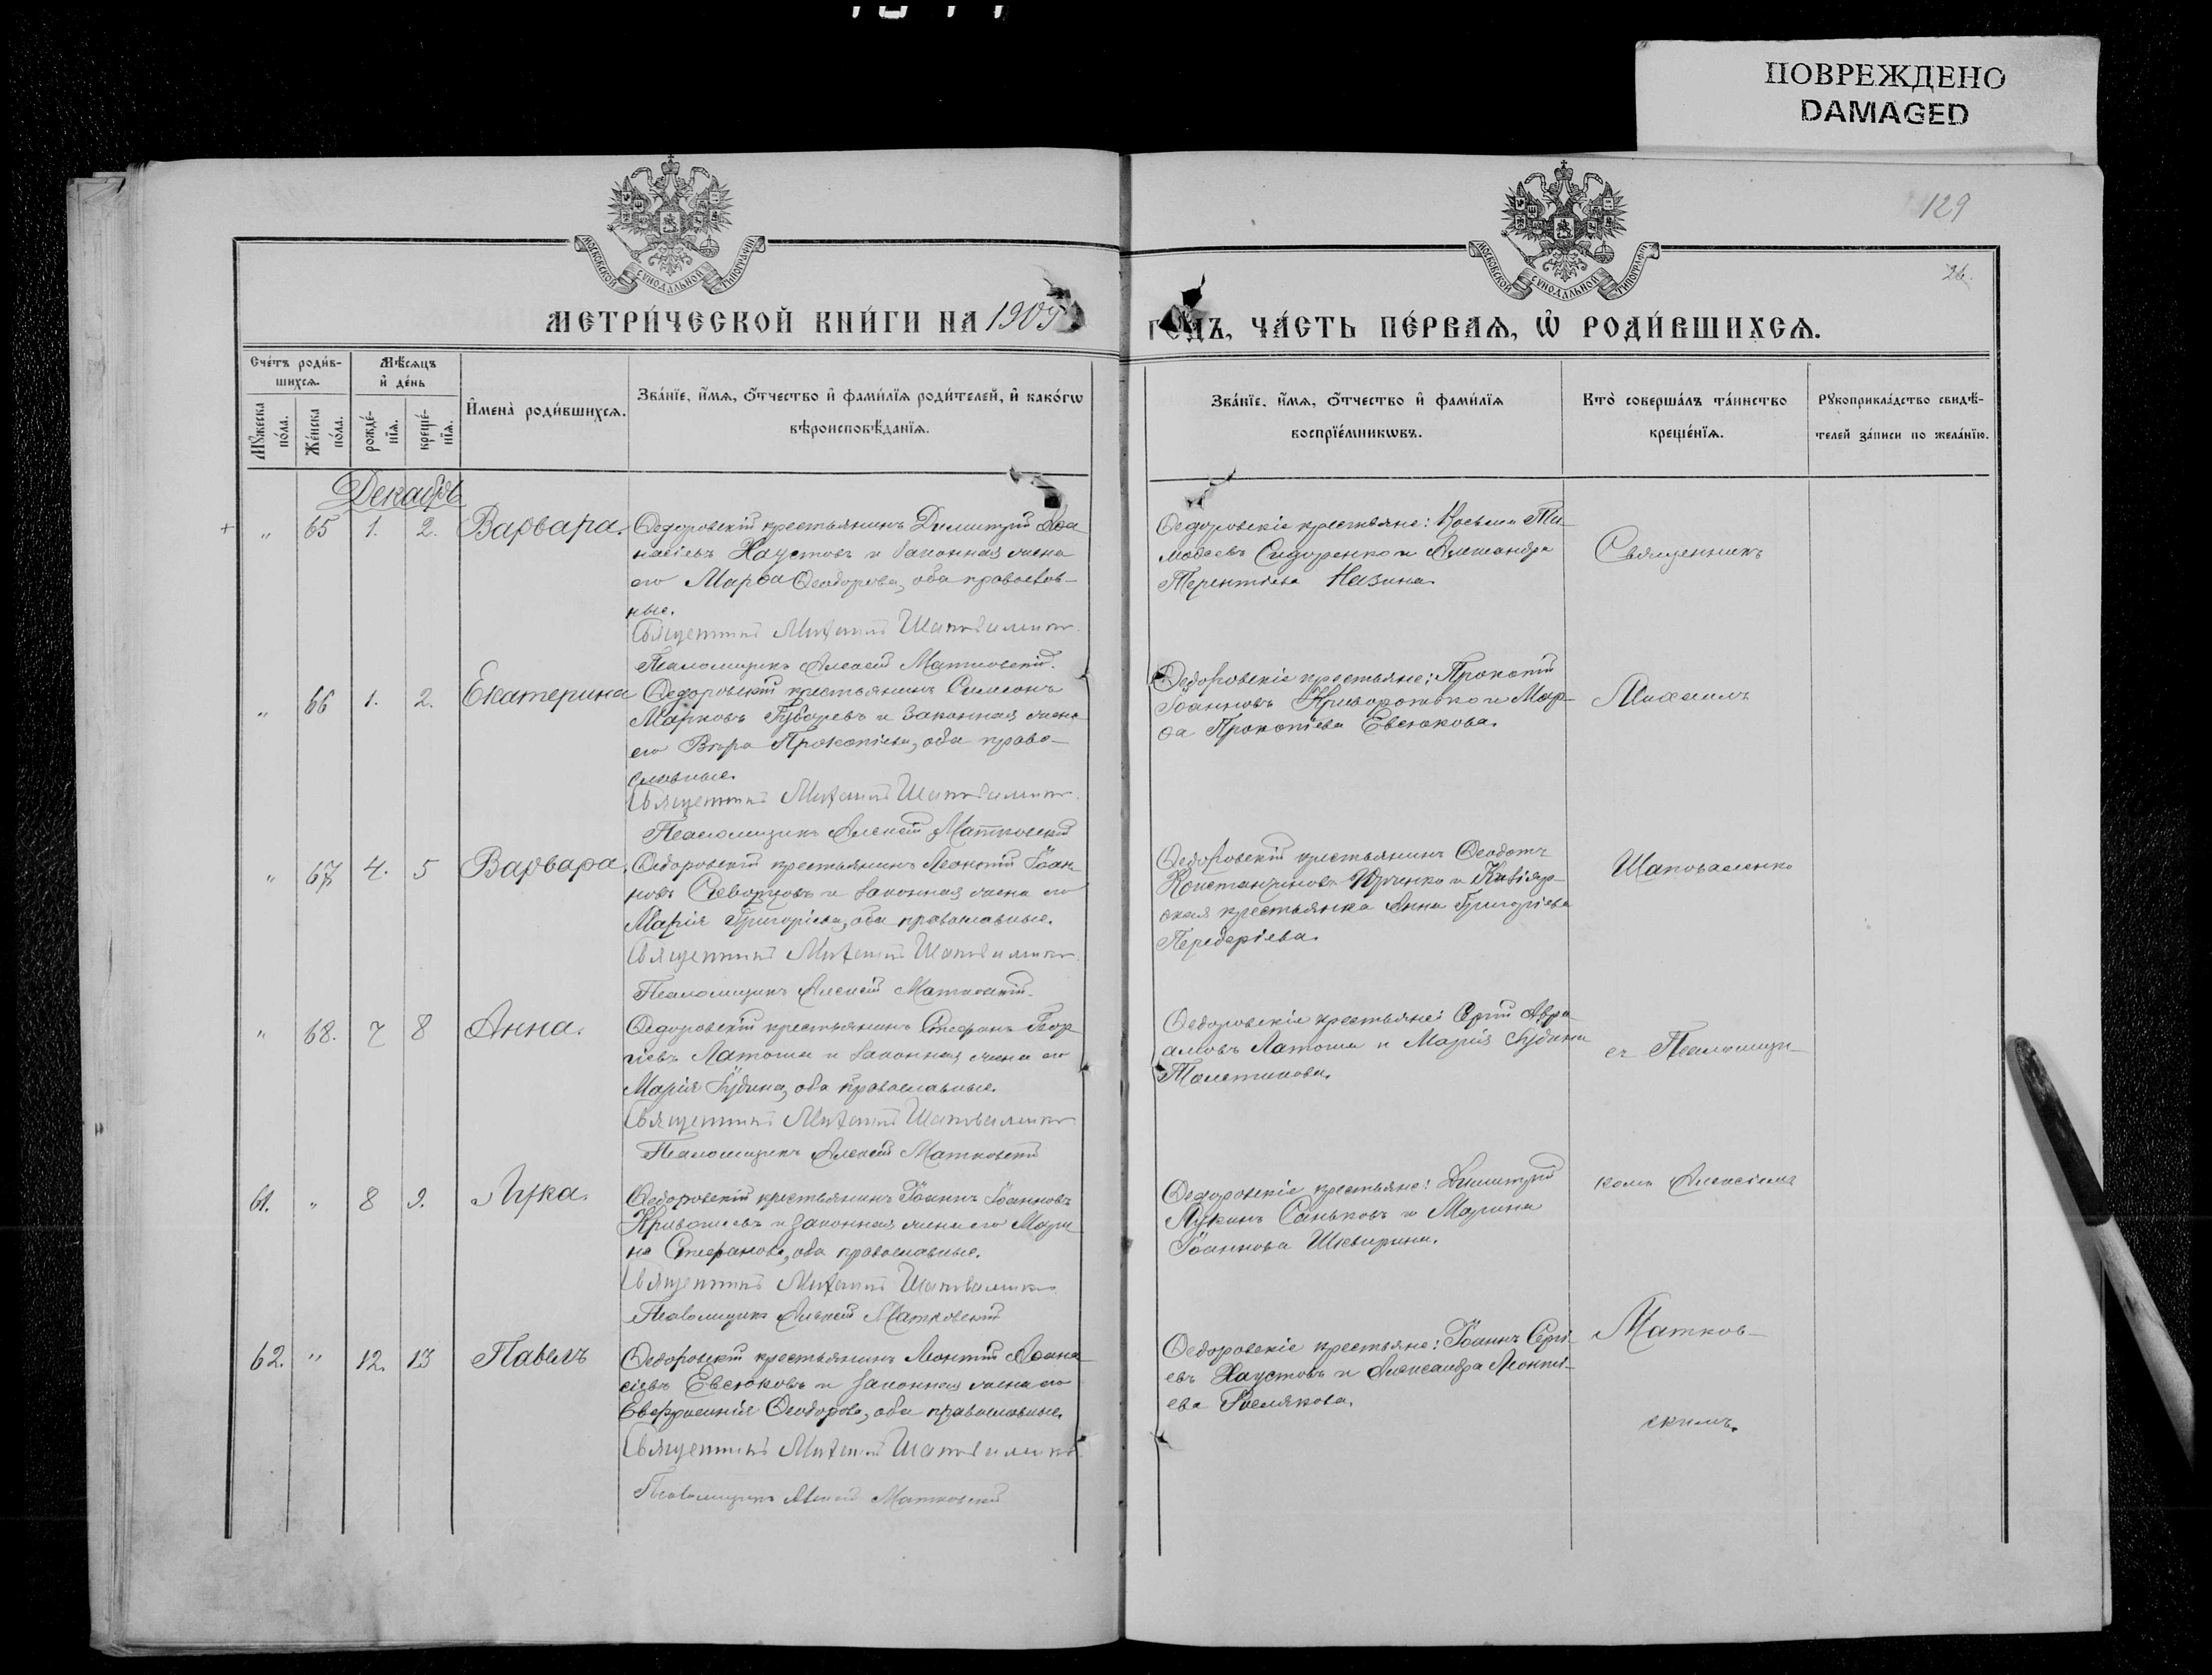 ПОВРЕЖДЕНО
DAMAGED
129
26.
МОСКОВСКОЙ СУНОДАЛЬНОЙ ТИПОГРАФІИ
МОСКОВСКОЙ СУНОДАЛЬНОЙ ТИПОГРАФІИ
МЕТРИ́ЧЕСКОЙ КНИ́ГИ НА 1909
ГОДЪ, ЧА́СТЬ ПЕ́РВАѦ, Ѡ РОДИ́ВШИХСѦ.
Сче́тъ роди́в-
шихсѧ.
Мѣ́сѧцъ
и҆ де́нь
Мꙋ́жеска
по́ла.
Же́нска
по́ла.
рожде́-
нїѧ.
креще́-
нїѧ.
И҆мена̀ роди́вшихсѧ.
Зва́нїе, и҆́мѧ, ѻ҆́тчество и҆ фами́лїѧ роди́телей, и҆ како́гѡ
вѣроисповѣ́данїѧ.
Зва́нїе, и҆́мѧ, ѻ҆́тчество и҆ фами́лїѧ
воспрїе́мникѡвъ.
Кто̀ соверша́лъ та́инство
креще́нїѧ.
Рꙋкоприкла́дство свидѣ́-
телей за́писи по жела́нїю.
Декабрь
+ " 65 1. 2. Варвара.
Ѳедоровскій крестьянинъ Димитрій Аѳа
насіевъ Хаустовъ и законная жена
его Марѳа Ѳеодорова, оба православ-
ные.
Священникъ Михаилъ Шаповаленко.
Псаломщикъ Алексій Матковскій.
Ѳедоровскіе крестьяне: Косьма Ти-
моѳеевъ Сидоренко и Александра
Терентіева Назина.
Священникъ
" 66 1. 2. Екатерина
Ѳедоровскій крестьянинъ Симеонъ
Марковъ Губаревъ и законная жена
его Вѣра Прокопіева, оба право-
славные.
Священникъ Михаилъ Шаповаленко.
Псаломщикъ Алексій Матковскій
Ѳедоровскіе крестьяне: Прокопій
Іоанновъ Криворотько и Мар-
ѳа Прокопіева Евсюкова.
Михаилъ
" 67 4. 5 Варвара.
Ѳедоровскій крестьянинъ Леонтій Іоан-
новъ Скворцовъ и законная жена его
Марія Григоріева, оба православные.
Священникъ Михаилъ Шаповаленко.
Псаломщикъ Алексій Матковскій.
Ѳедоровскій крестьянинъ Ѳеодотъ
Константиновъ Юрченко и
ская крестьянка Анна Григоріева
Передеріева.
Шаповаленко
" 68. 7 8 Анна.
Ѳедоровскій крестьянинъ Стефанъ Геор-
гіевъ Латоша и законная жена его
Марія Іудина, оба православные.
Священникъ Михаилъ Шаповаленко
Псаломщикъ Алексій Матковскій
Ѳедоровскіе крестьяне: Сергій Авра
амовъ Латоша и Марія Іудина
съ Псаломщи-
61. " 8 9. Лука.
Ѳедоровскій крестьянинъ Іоаннъ Іоанновъ
и законная жена его Мари
на Стефанова, оба православные.
Священникъ Михаилъ Шаповаленко.
Псаломщикъ Алексій Матковскій
Ѳедоровскіе крестьяне: Димитрій
Лукинъ Саньковъ и Марина
Іоаннова Шквирина.
комъ Алексіемъ
62. " 12. 13 Павелъ
Ѳедоровскій крестьянинъ Леонтій Аѳана-
сіевъ Евсюковъ и законная жена его
Евфросинія Ѳеодорова, оба православные.
Священникъ Михаилъ Шаповаленко
Псаломщикъ Алексій Матковскій
Ѳедоровскіе крестьяне: Іоаннъ Сергі-
евъ Хаустовъ и Александра Леонті-
ева
Матков-
скимъ.